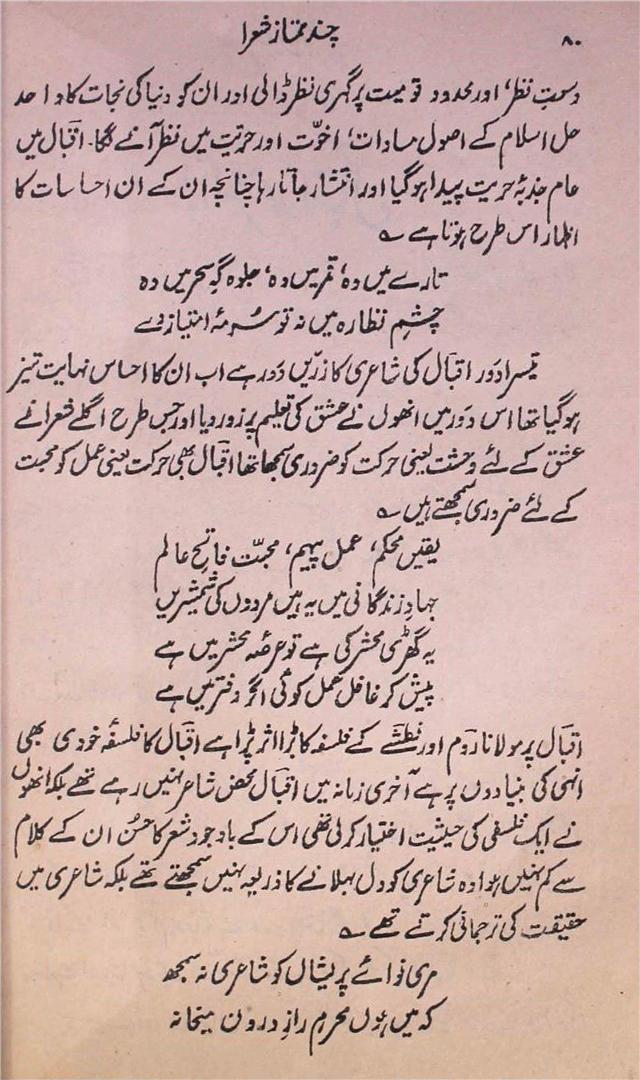 ۸۰
چند ممتاز شعرا
وسعتِ نظر، اور محدود قومیت پر گہری نظر ڈالی اور ان کو دنیا کی نجات کا واحد
حل اسلام کے اصول مساوات، اخوّت اور حریت میں نظر آنے لگا۔ اقبال میں
عام جذبۂ حریت پیدا ہو گیا اور انتشار جاتا رہا چنانچہ ان کے ان احساسات کا
اظہار اس طرح ہوتا ہے ؎
تارے میں وہ، قمر میں وہ، جلوہ گہِ سحر میں وہ
چشمِ نظارہ میں نہ تو سُرمۂ امتیاز دے
تیسرا دَور اقبال کی شاعری کا زرّیں دَور ہے اب ان کا احساس نہایت تیز
ہو گیا تھا اس دَور میں انھوں نے عشق کی تعلیم پر زور دیا اور جس طرح اگلے شعرا نے
عشق کے لئے وحشت یعنی حرکت کو ضروری سمجھا تھا اقبال بھی حرکت یعنی عمل کو محبت
کے لئے ضروری سمجھتے ہیں ؎
یقیں محکم، عمل پیہم، محبّت فاتحِ عالم
جہادِ زندگانی میں یہ ہیں مردوں کی شمشیریں
یہ گھڑی محشر کی ہے تو عرصۂ محشر میں ہے
پیش کر غافل عمل کوئی اگر دفتر میں ہے
اقبال پر مولانا روم اور نطشے کے فلسفہ کا بڑا اثر پڑا ہے اقبال کا فلسفۂ خودی بھی
انہی کی بنیادوں پر ہے آخری زمانہ میں اقبال محض شاعر نہیں رہے تھے بلکہ انھوں
نے ایک فلسفی کی حیثیت اختیار کر لی تھی اس کے باوجود شعر کا حسُن ان کے کلام
سے کم نہیں ہوا وہ شاعری کو دل بہلانے کا ذریعہ نہیں سمجھتے تھے بلکہ شاعری میں
حقیقت کی ترجمانی کرتے تھے ؎
مری نوائے پریشاں کو شاعری نہ سمجھ
کہ میں ہوں محرمِ رازِ درونِ میخانہ